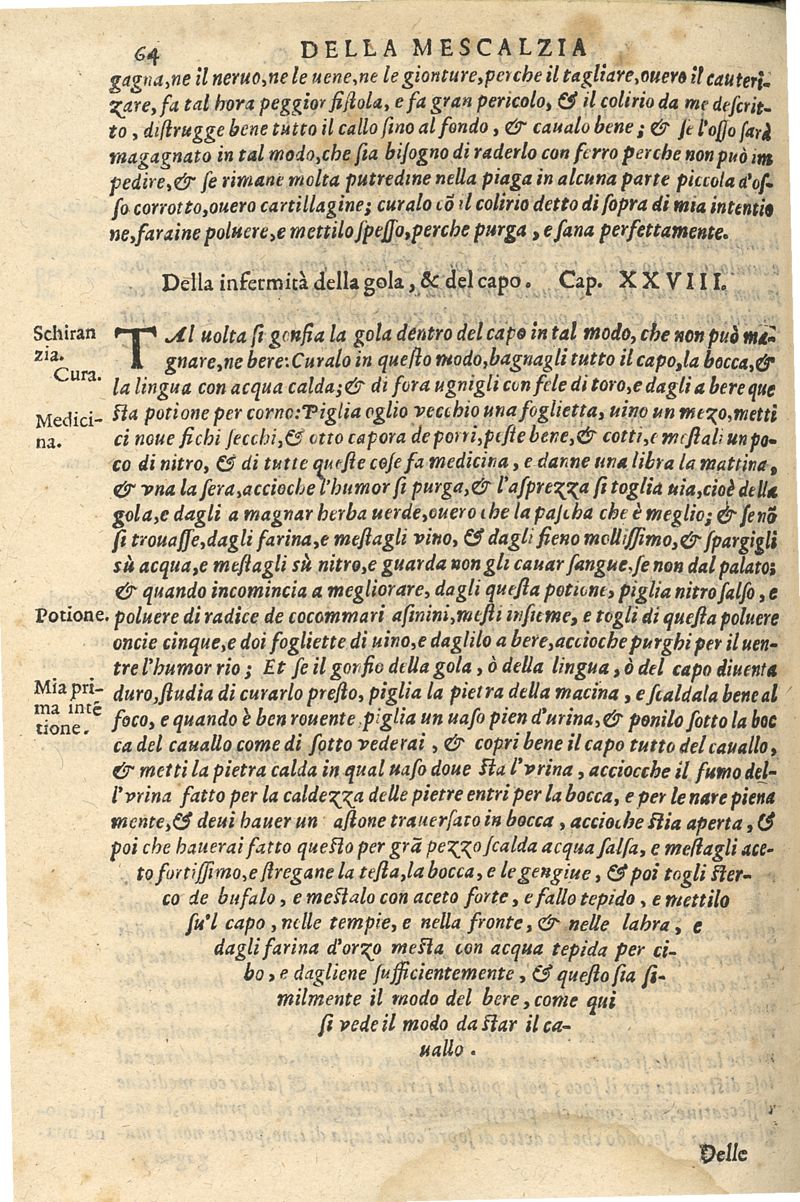 64 DELLA MESCALZIA
gagna,ne il neruo,ne le uene,ne le gionture,perche il tagliare,ouero il cauteri-
zare, fa tal hora peggior fistola, e fa gran pericolo, & il colirio da me descrit-
to, distrugge bene tutto il callo sino al fondo, & caualo bene; & se l'osso sarà
magagnato in tal modo,che sia bisogno di raderlo con ferro perche non può im
pedire,& se rimane molta putredine nella piaga in alcuna parte piccola d'os-
so corrotto,ouero cartillagine; curalo cō il colirio detto di sopra di mia intentio
ne,faraine poluere,e mettilo spesso,perche purga, e sana perfettamente.
Della infermità della gola, & del capo. Cap. XXVIII.
Schiran
zia.
Cura.
TAl uolta si gonfia la gola dentro del capo in tal modo, che non può mā-
gnare,ne bere:Curalo in questo modo,bagnagli tutto il capo,la bocca,&
la lingua con acqua calda;& di fora ugnigli con fele di toro,e dagli a bere que
Medici-
na.
sta potione per corno:Piglia oglio vecchio una foglietta, uino un mezo,metti
ci noue fichi secchi,& otto capora de porri,peste bene,& cotti,e mestali un po-
co di nitro, & di tutte queste cose fa medicina, e danne una libra la mattina,
& vna la sera,accioche l'humor si purga,& l'asprezza si toglia uia,cioè della
gola,e dagli a magnar herba uerde,ouero che la pascha che è meglio; & se nō
si trouasse,dagli farina,e mestagli vino, & dagli fieno mollissimo,& spargigli
sù acqua,e mestagli sù nitro,e guarda non gli cauar sangue.se non dal palato;
& quando incomincia a megliorare, dagli questa potione, piglia nitro salso, e
Potione. poluere di radice de cocommari asinini,mesti insieme, e togli di questa poluere
oncie cinque,e doi fogliette di uino,e daglilo a bere,accioche purghi per il uen-
tre l'humor rio; Et se il gonfio della gola, ò della lingua, ò del capo diuenta
Mia pri-
ma intē
tione.
duro,studia di curarlo presto, piglia la pietra della macina, e scaldala bene al
foco, e quando è ben rouente piglia un uaso pien d'urina,& ponilo sotto la boc
ca del cauallo come di sotto vederai, & copri bene il capo tutto del cauallo,
& metti la pietra calda in qual uaso doue sta l'vrina, acciocche il fumo del-
l'vrina fatto per la caldezza delle pietre entri per la bocca, e per le nare piena
mente,& deui hauer un astone trauersato in bocca, accioche stia aperta, &
poi che hauerai fatto questo per grā pezzo scalda acqua salsa, e mestagli ace-
to fortissimo,e stregane la testa,la bocca, e le gengiue, & poi togli ster-
co de bufalo, e mestalo con aceto forte, e fallo tepido, e mettilo
su'l capo, nelle tempie, e nella fronte, & nelle labra, e
dagli farina d'orzo mesta con acqua tepida per ci-
bo, e dagliene sufficientemente, & questo sia si-
milmente il modo del bere, come qui
si vede il modo da star il ca-
uallo.
Delle